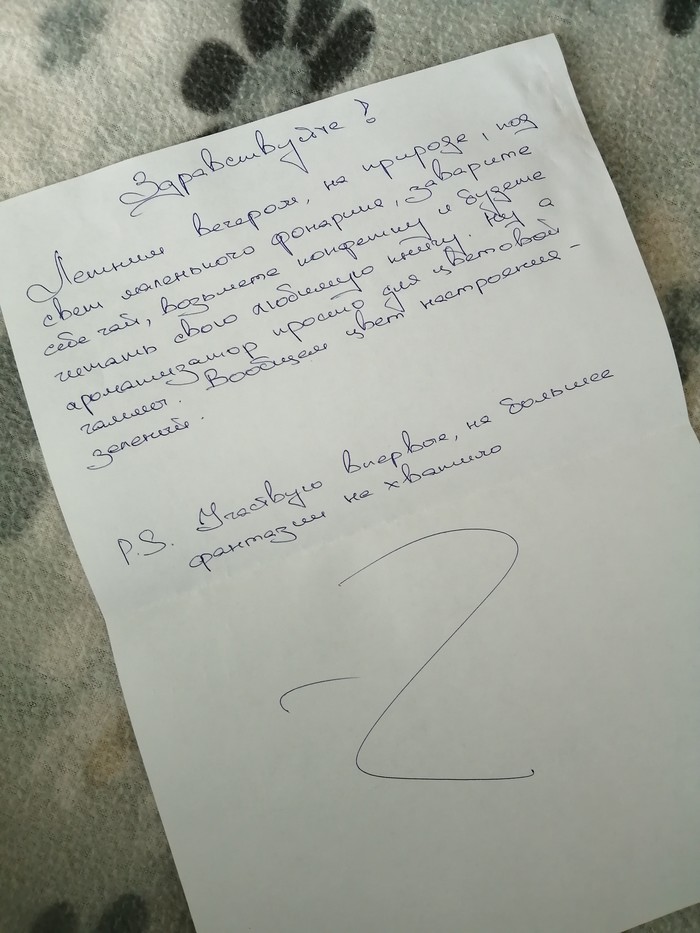 Здравствуйте!
Летним вечером, на природе, под
свет маленького фонарика, заварите
себе чай, возьмете конфетку и будете
читать свою любимую книгу. Ну а
ароматизатор просто для цветовой
гаммы. Вообщем цвет настроения -
зеленый.
P.S. Участвую впервые, на большее
фантазии не хватило